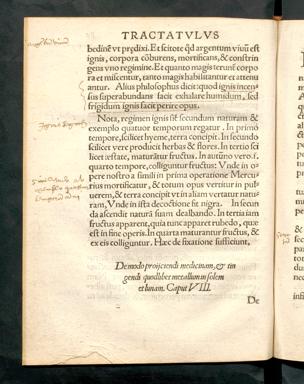 TRACTATVLVS
bediné vt prędixi. Et scitote ꝙ argentum viuũ est
ignis, corpora cõburens, mortificans, & constrin
gens vno regimine. Et quanto magis terunt̃ corpo
ra et miscentur, tanto magis habilitantur et attenu
antur. Alius philosophus dicit: quod ignis incen-
sus superabundans facit exhalare humidum, sed
frigidum ignis facit perire opus.
Nota, regimen ignis sit secundum naturam &
exemplo quatuor temporum regatur. In primo
tempore, scilicet hyeme, terra concipit. In secundo
scilicet vere producit herbas & flores. In tertio sci
licet æstate, maturãtur fructus. In autũno vero. i.
quarto tempore, colliguntur fructus: Vnde in o-
pere nostro a simili in prima operatione Mercu-
rius mortificatur, & totum opus vertitur in pul
uerem, & terra concipit vt in aliam vertatur natu-
ram, Vnde in ista decoctione sit nigra. In secun
da ascendit naturã suam dealbando. In tertia iam
fructus apparent, quia tunc apparet rubedo, quæ
est in fine operis. In quarta maturantur fructus, &
ex eis colliguntur. Hæc de fixatione sufficiunt,
De modo proijciendi medicinam, & tin
gendi quodlibet metallum in solem
et lunam. Caput VIII.
De